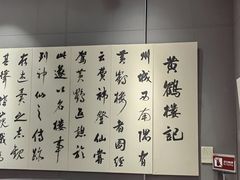 黃鶴樓記
州城西南隅有
黄鶴樓者圖經
云費禕登仙嘗
駕黄鶴返憩於
此遂以名樓事
列神仙之傳跡
存述異之志觀